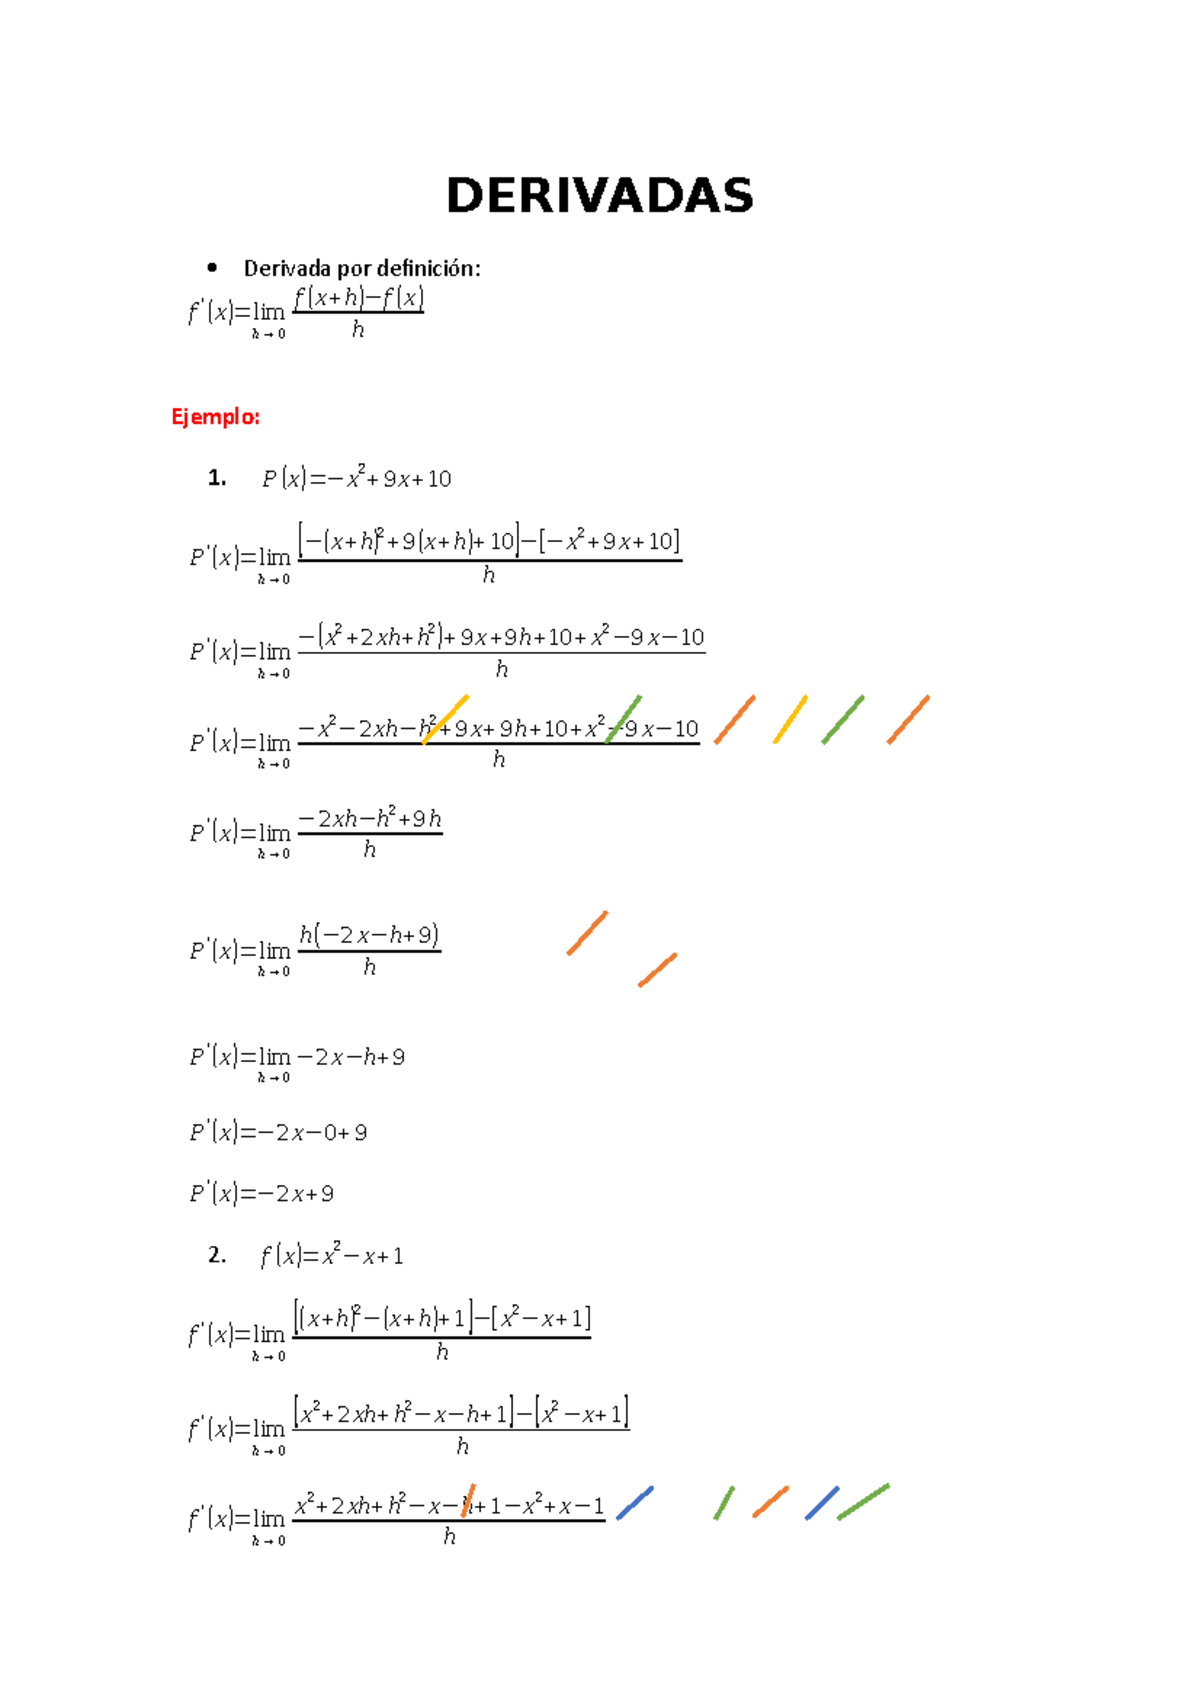 DERIVADAS
• Derivada por definición:
f'(x)=lim h→0 (f(x+h)−f(x))/h
Ejemplo:
1. P(x)=−x²+9x+10
P'(x)=lim h→0 ([−(x+h)²+9(x+h)+10]−[−x²+9x+10])/h
P'(x)=lim h→0 (−(x²+2xh+h²)+9x+9h+10+x²−9x−10)/h
P'(x)=lim h→0 (−x²−2xh−h²+9x+9h+10+x²−9x−10)/h
P'(x)=lim h→0 (−2xh−h²+9h)/h
P'(x)=lim h→0 (h(−2x−h+9))/h
P'(x)=lim h→0 −2x−h+9
P'(x)=−2x−0+9
P'(x)=−2x+9
2. f(x)=x²−x+1
f'(x)=lim h→0 ([(x+h)²−(x+h)+1]−[x²−x+1])/h
f'(x)=lim h→0 ([x²+2xh+h²−x−h+1]−[x²−x+1])/h
f'(x)=lim h→0 (x²+2xh+h²−x−h+1−x²+x−1)/h